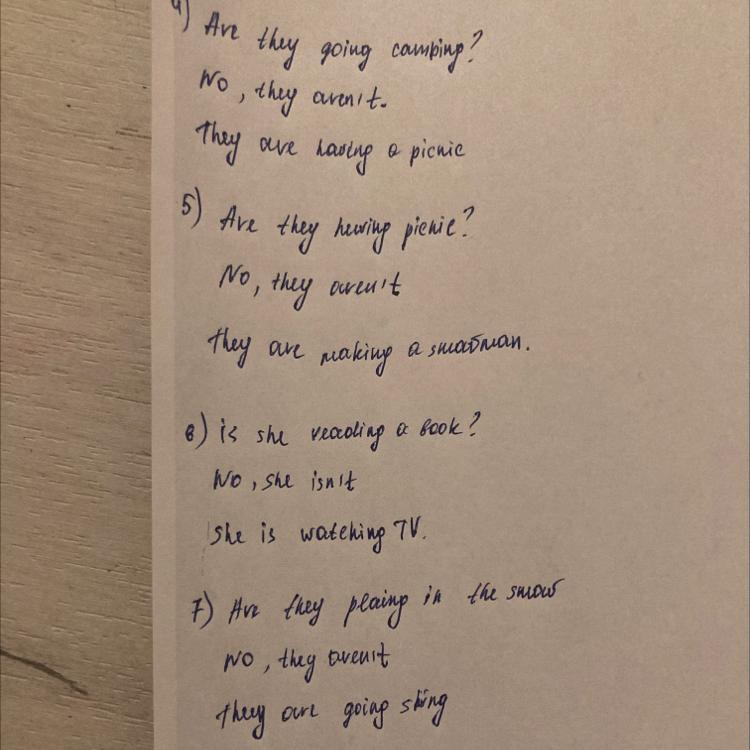 4) Are they going camping?
No, they aren't.
They are having a picnic
5) Are they hewing picnic?
No, they aren't
they are making a snowman.
6) is she reading a book?
No, she isn't
she is watching TV.
7) Are they plaing in the snow
No, they aren't
they are going